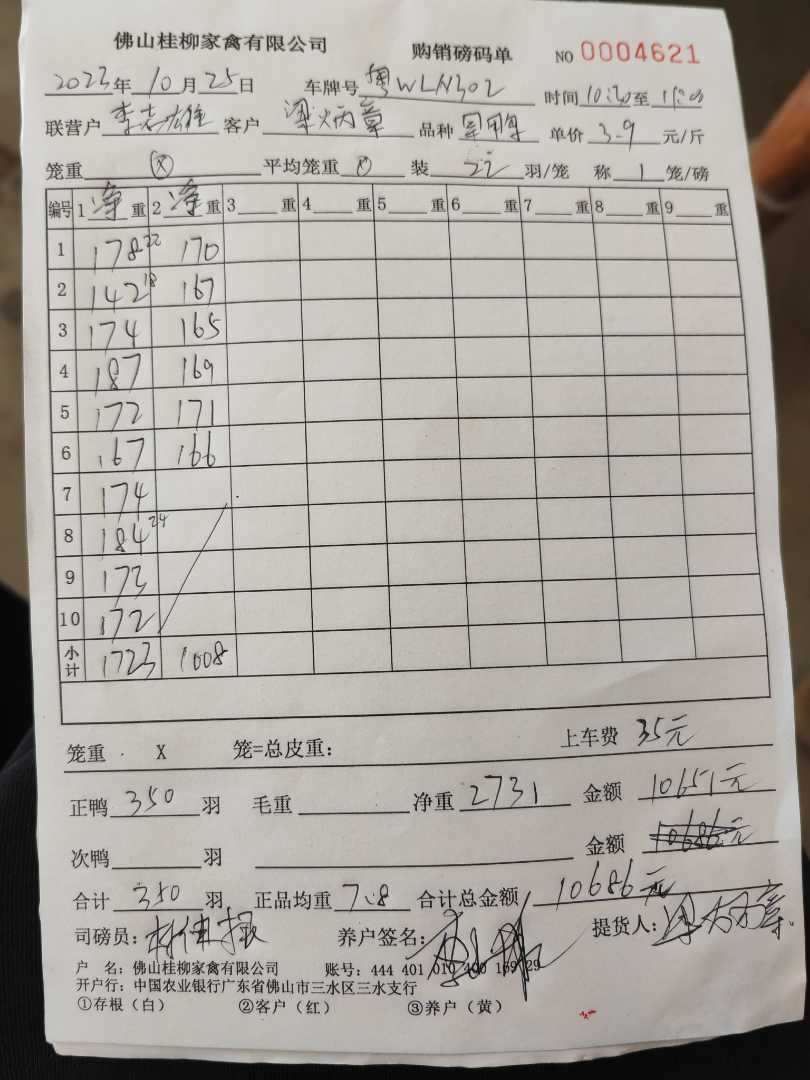 佛山桂柳家禽有限公司 购销磅码单 NO 0004621
2023年10月25日 车牌号 粤WLN302 时间 10:30至
联营户 李志雄 客户 梁炳章 品种 单价 3.9 元/斤
笼重 平均笼重 装 22 羽/笼 称 1 笼/磅
编号 1 净 重 2 净 重 3 重 4 重 5 重 6 重 7 重 8 重 9 重
1 178 22 170
2 142 18 167
3 174 165
4 187 169
5 172 171
6 167 166
7 174
8 184 24
9 173
10 172
小计 1723 1008
笼重 X 笼=总皮重: 上车费 35元
正鸭 350 羽 毛重 净重 2731 金额 10651元
次鸭 羽 金额 10686元
合计 350 羽 正品均重 7.8 合计总金额 10686元
司磅员: 养户签名: 提货人: 梁炳章
户 名: 佛山桂柳家禽有限公司 账号: 444 401 010 400 169 29
开户行: 中国农业银行广东省佛山市三水区三水支行
①存根(白) ②客户(红) ③养户(黄)